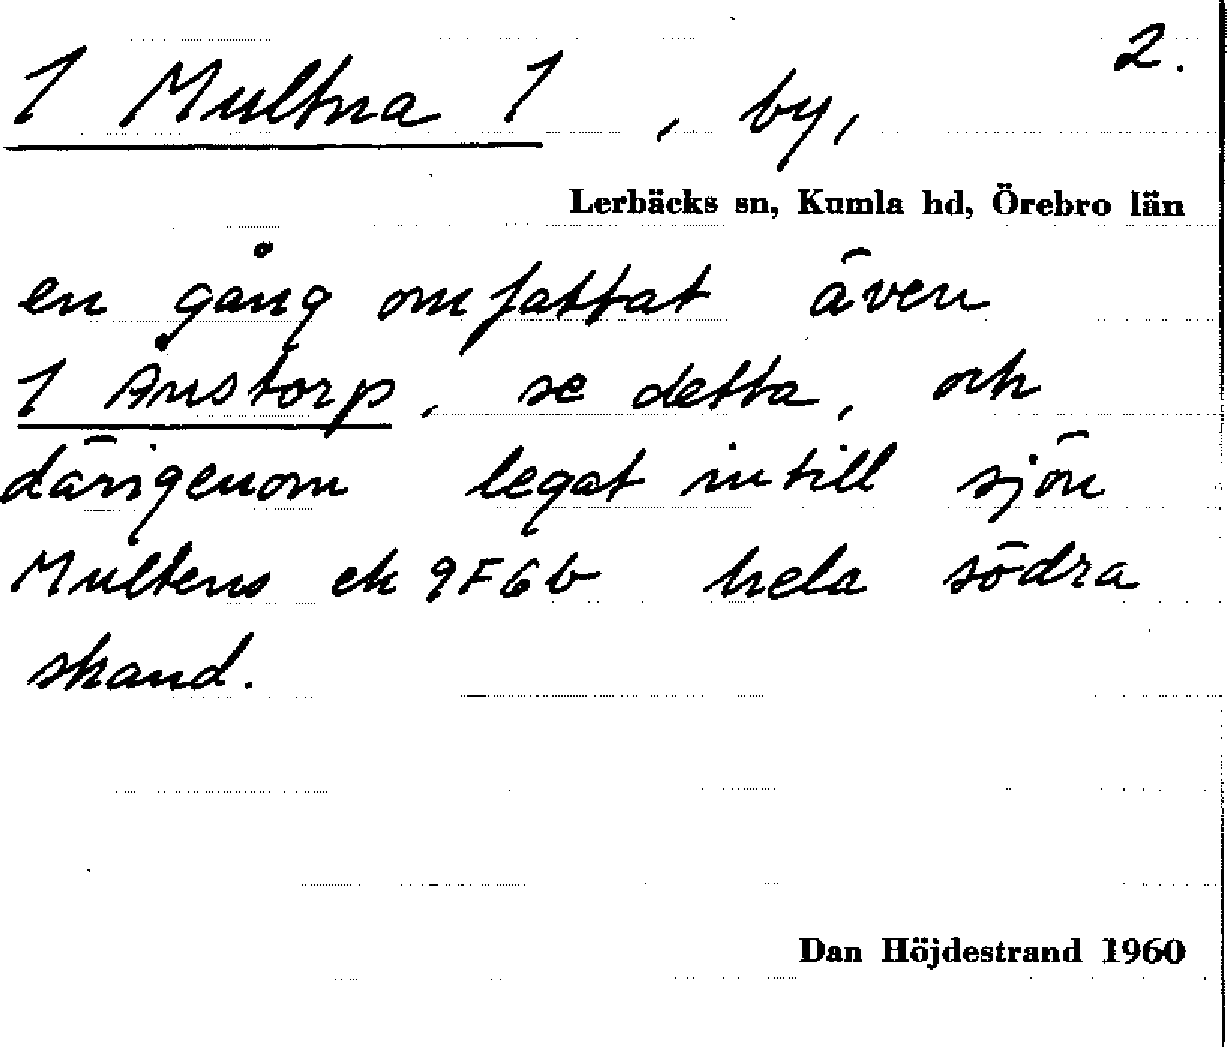 2.
1 Multna 1, by,
Lerbäcks sn, Kumla hd, Örebro län
en gång omfattat även
1 Ånstorp, se detta, och
därigenom legat intill sjön
Multens ek 9F6b hela södra
strand.
Dan Höjdestrand 1960